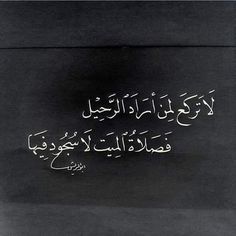 لَا تَركَع لِمَن أرَادَ الرَّحِيْل
فَصَلَاةُ المِيَت لَا سُجُود فِيهَا